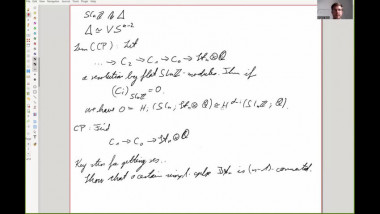 SL_n Z ↷ Δ
Δ ≃ V S^{n-2}
Lem (CP). Let
… → C_2 → C_1 → C_0 → St_n ⊗ Q
a resolution by flat SL_n Z-modules. Then if
(C_i)_{SL_n Z} = 0,
we have 0 = H_i (SL_n; St_n ⊗ Q) ≅ H^{d-i} (SL_n Z; Q).
CP: Find
C_1 → C_0 → St_n ⊗ Q
Key step for getting
Show that a certain simpl. cplx is (n-1)-connected.